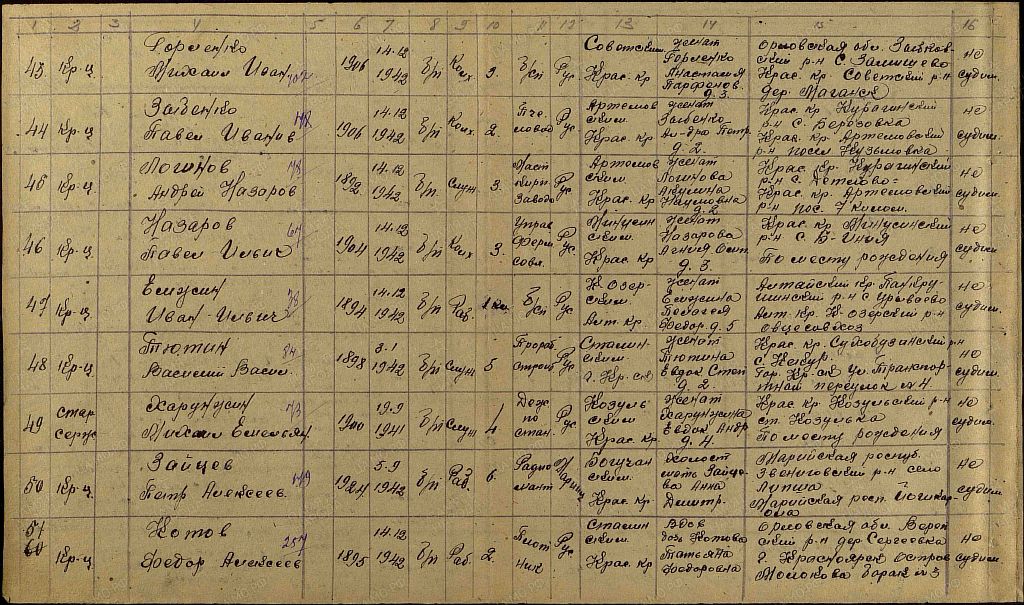 1 2 3 4 5 6 7 8 9 10 11 12 13 14 15 16
43 Кр-ц Горленко Михаил Иван 1906 14.12 1942 Б/п Колх 3. Б/сп Рус Советским Крас. кр женат Горленко Анастасия Парфенов. д. 3. Орловская обл. р-н с Крас. кр Советский р-н дер. Маганск не судим.
44 Кр-ц Павел Иванов 1906 14.12 1942 Б/п Колх 2. Пче ловод Рус. Артемов ским. Крас. кр женат Петр. д. 2. Крас. кр Курагинский р-н с Березовка Крас. кр Артемовский р-н посел Кузьмовка не судим.
45 Кр-ц Логинов 78 Андрей Назаров 1892 14.12 1942 Б/п Служ 3. Маст кирп. Завода Рус Артемов ским. Крас. кр женат Логинова Акулина Наумовна д. 2 Крас. кр. Курагинский р-н с Крас. кр Артемовский р-н пос. 7 килом. не судим
46 Кр-ц Назаров Павел Ильич 1904 14.12 1942 Б/п Колх 3 Управ ферм совх. Рус Минусин ским. Крас. кр женат Назарова Агния д. 3. Крас. кр Минусинский р-н с. Б-Иныя По месту рождения не судим.
47 Кр-ц Емжин 38 Иван Ильич 1894 14.12 1942 Б/п Раб. 1 кл. Б/сп Рус К Озер- ским. Алт. кр. женат Емжина Пелагея Федор д. 5 Алтайский кр. Панкру- шинский р-н с Урываево Алт. кр. К-Озерский р-н овцесовхоз не судим.
48 Кр-ц. Тютин 84 Василий Васил. 1898 3.1 1942 Б/п Служ 5 Прораб строит Рус Сталин- ским. г. Кр-ск женат Тютина Евдок Степ д. 2. Крас. кр. Сухобузимский р-н с. Кекур. Гор. Кр-ск ул. Транспор тный переулок № 4. не судим.
49 Стар серж Харунжин 73 Михаил Емельян. 1900 19.9 1941 Б/п Служ 4 Деж по стан. Рус. Козуль ским Крас. кр женат Харунжина Евдок Андр д. 4. Крас. кр Козульский р-н ст. Козулька По месту рождения не судим.
50 Кр-ц Зайцев 149 Петр Алексеев. 1924 5.9 1942 Б/п Раб. 6 Радио мант Мариец Богучан ским. Крас. кр холост мать Зайце- ва Анна Дмитр. Марийская респуб. Звениговский р-н село Марийская респ. Йошкар- ола не судим.
51 60 Кр-ц. Котов 257 Федор Алексеев 1895 14.12 1942 Б/п Раб. 2. Плот ник Рус. Сталин ским. Крас. кр Вдов дочь Котова Татьяна Федоровна Орловская обл. ский р-н дер Сергеевка г. Красноярск Остров Молокова барак № 3 не судим.